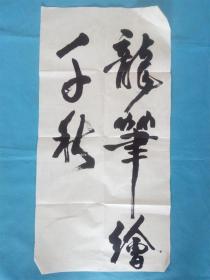 龍筆繪
千秋